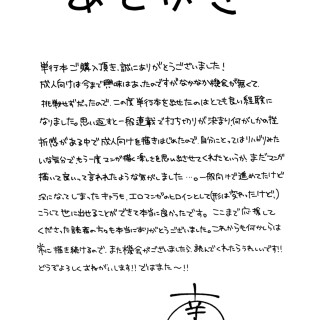 あとがき
単行本ご購入頂き、誠にありがとうございました!
成人向けは今まで興味はあったのですがなかなか機会が無くて、
挑戦せずだったので、この度単行本を出せたのはとても良い経験に
なりました。思い返すと一般連載で打ち切りが決まり何がしかの挫
折感がある中で成人向けを描きはじめたので、自分にとってはリハビリみた
いな気分で、もう一度マンガ描く楽しさを思い出させてくれたというか、まだマンガ
描いて良いって言われたような気がしました…。一般向けで進めてたけど
没になってしまったキャラも、エロマンガのヒロインとして(形は変わったけど、)
こうして世に出せることができて本当に良かったです。ここまで応援して
くださった読者の方々も本当にありがとうございました。これからも何かしらは
常に描き続けるので、また機会がございましたら、読んでくれたらうれしいです!!
どうぞよろしくおねがいします!!ではまた〜!!
幸